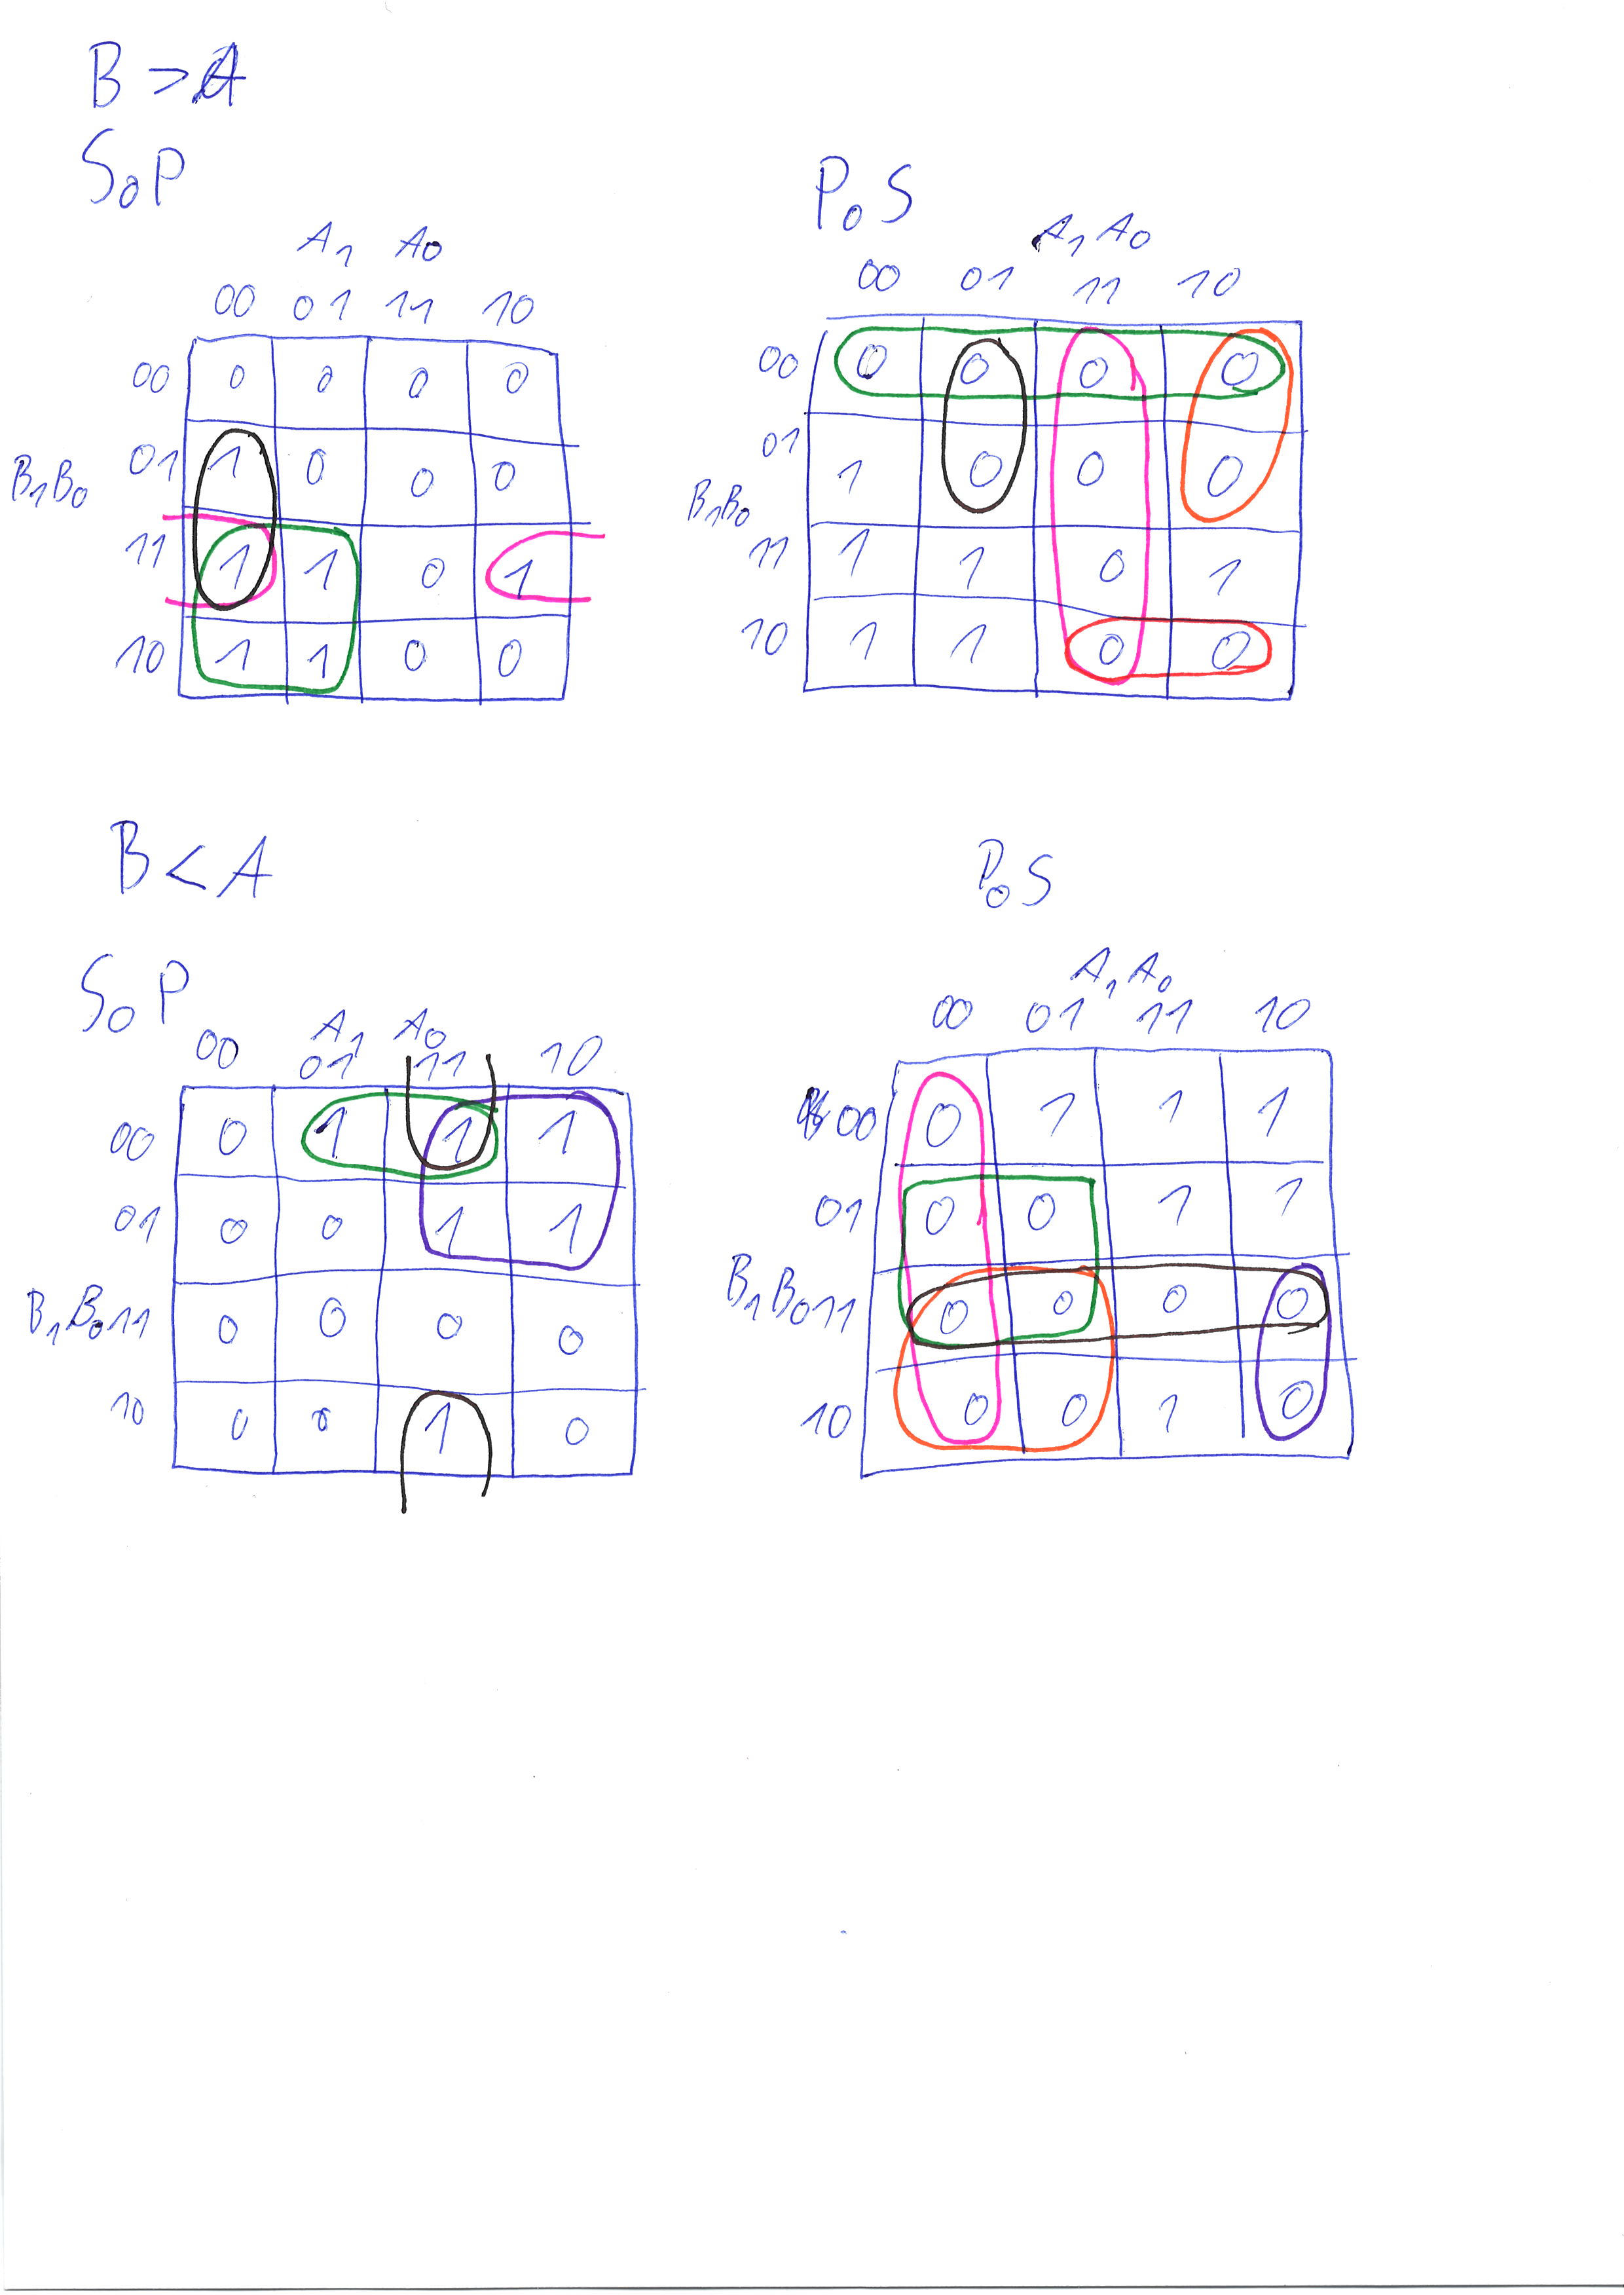 B > A
SoP
A1 A0
00 01 11 10
00 0 0 0 0
01 1 0 0 0
B1B0
11 1 1 0 1
10 1 1 0 0
PoS
A1 A0
00 01 11 10
00 0 0 0 0
01 1 0 0 0
B1B0
11 1 1 0 1
10 1 1 0 0
B < A
SoP
A1 A0
00 01 11 10
00 0 1 1 1
01 0 0 1 1
B1B0 11 0 0 0 0
10 0 0 1 0
PoS
A1 A0
00 01 11 10
00 0 1 1 1
01 0 0 1 1
B1B0 11 0 0 0 0
10 0 0 1 0